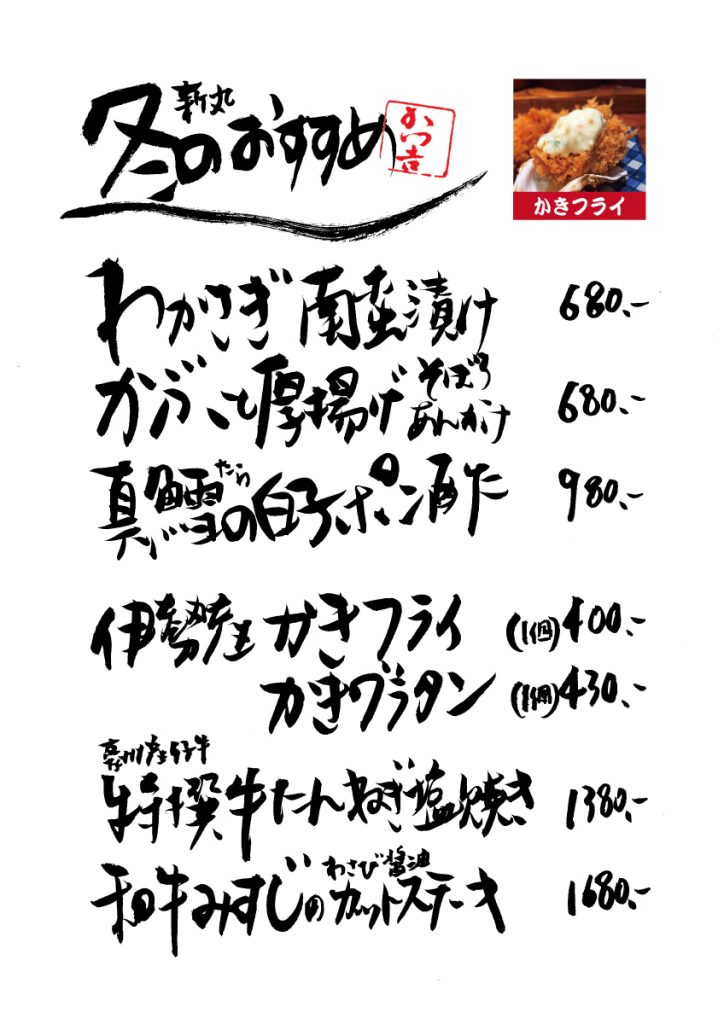 新丸
冬のおすすめ
おつ吉
かきフライ
わかさぎ南蛮漬け 680.-
かぶと厚揚げそぼろあんかけ 680.-
真鱈の白子ポン酢 980.-
たら
伊勢産かきフライ (1個)400.-
かきグラタン (1個)430.-
特撰牛たんねぎ塩焼き 1380.-
わさび醤油
和牛みすじのカットステーキ 1680.-